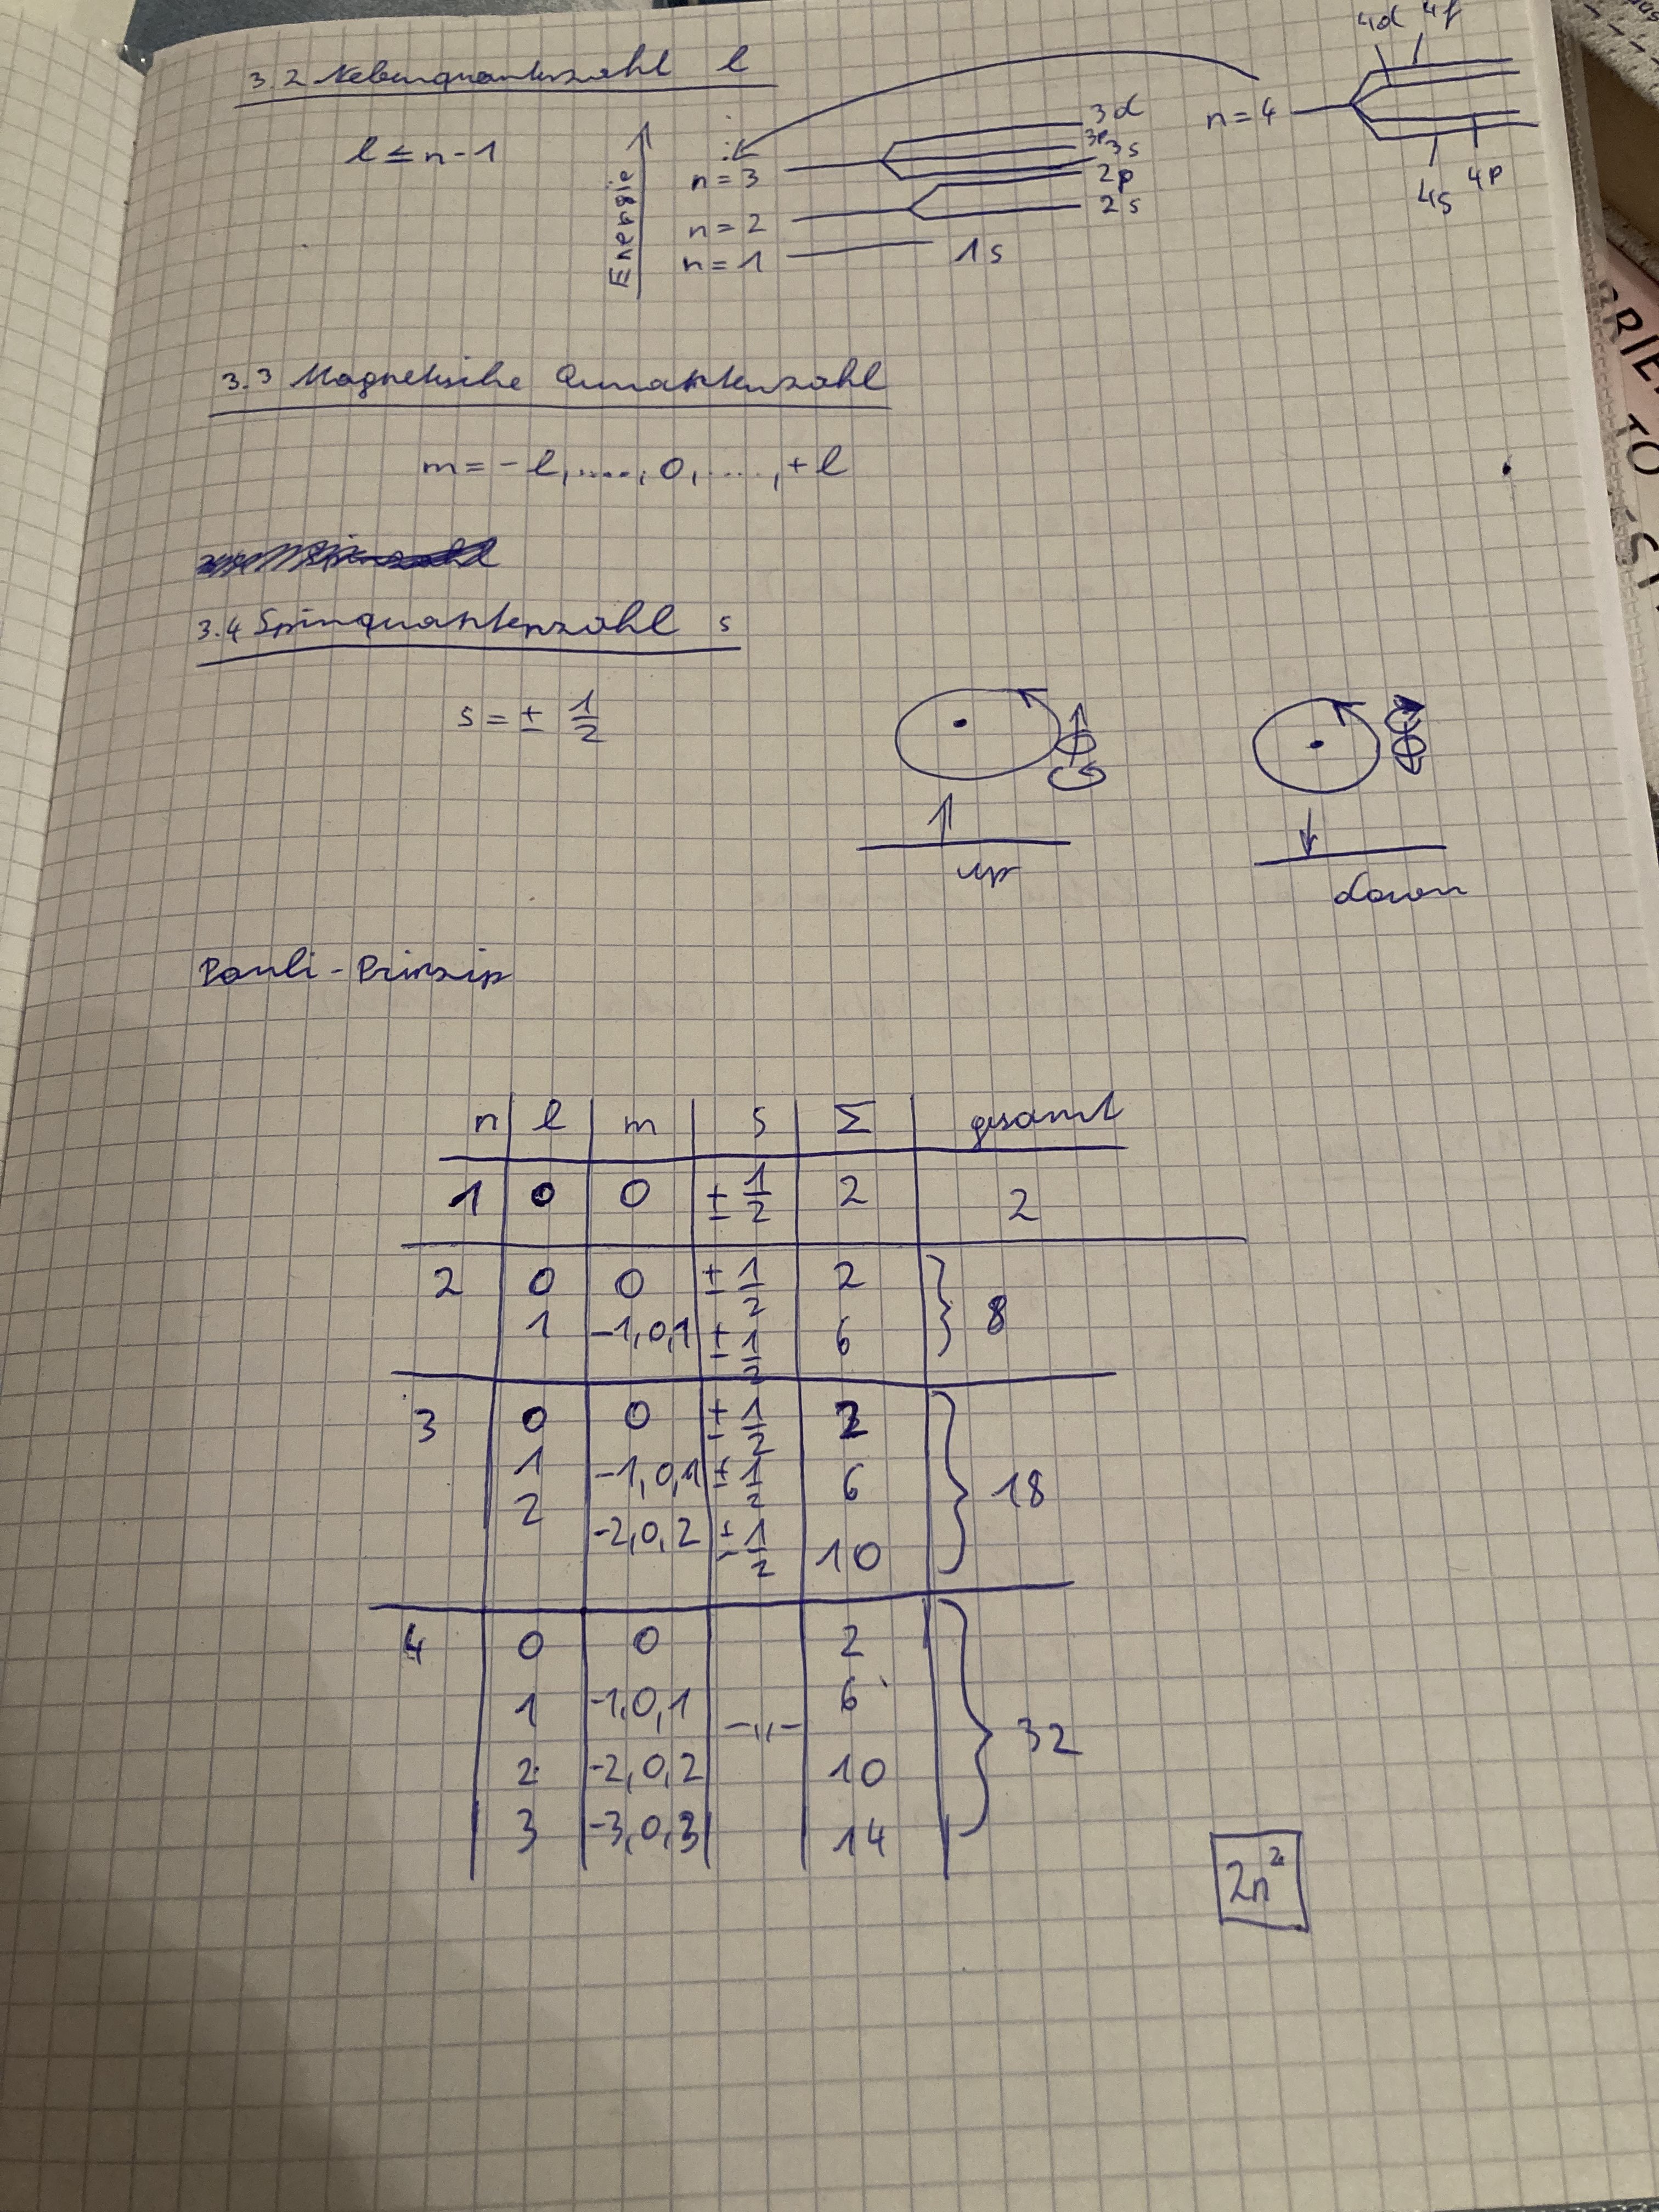 3.2 Nebenquantenzahl l
l ≤ n-1
Energie
n = 3
n = 2
n = 1
3d
3p 3s
2p
2s
1s
n = 4
4d 4f
4s 4p
3.3 Magnetische Qunantenzahl
m = - l, ....., 0, ....., + l
3.4 Spinquantenzahl s
s = ± 1/2
up
down
Pauli - Prinzip
n l m s Σ gesamt
1 0 0 ± 1/2 2 2
2 0 0 ± 1/2 2
1 -1,0,1 ± 1/2 6
8
3 0 0 ± 1/2 2
1 -1,0,1 ± 1/2 6
2 -2,0,2 ± 1/2 10
18
4 0 0 2
1 -1,0,1 -,,- 6
2 -2,0,2 10
3 -3,0,3 14
32
2n²
BRIE
TO